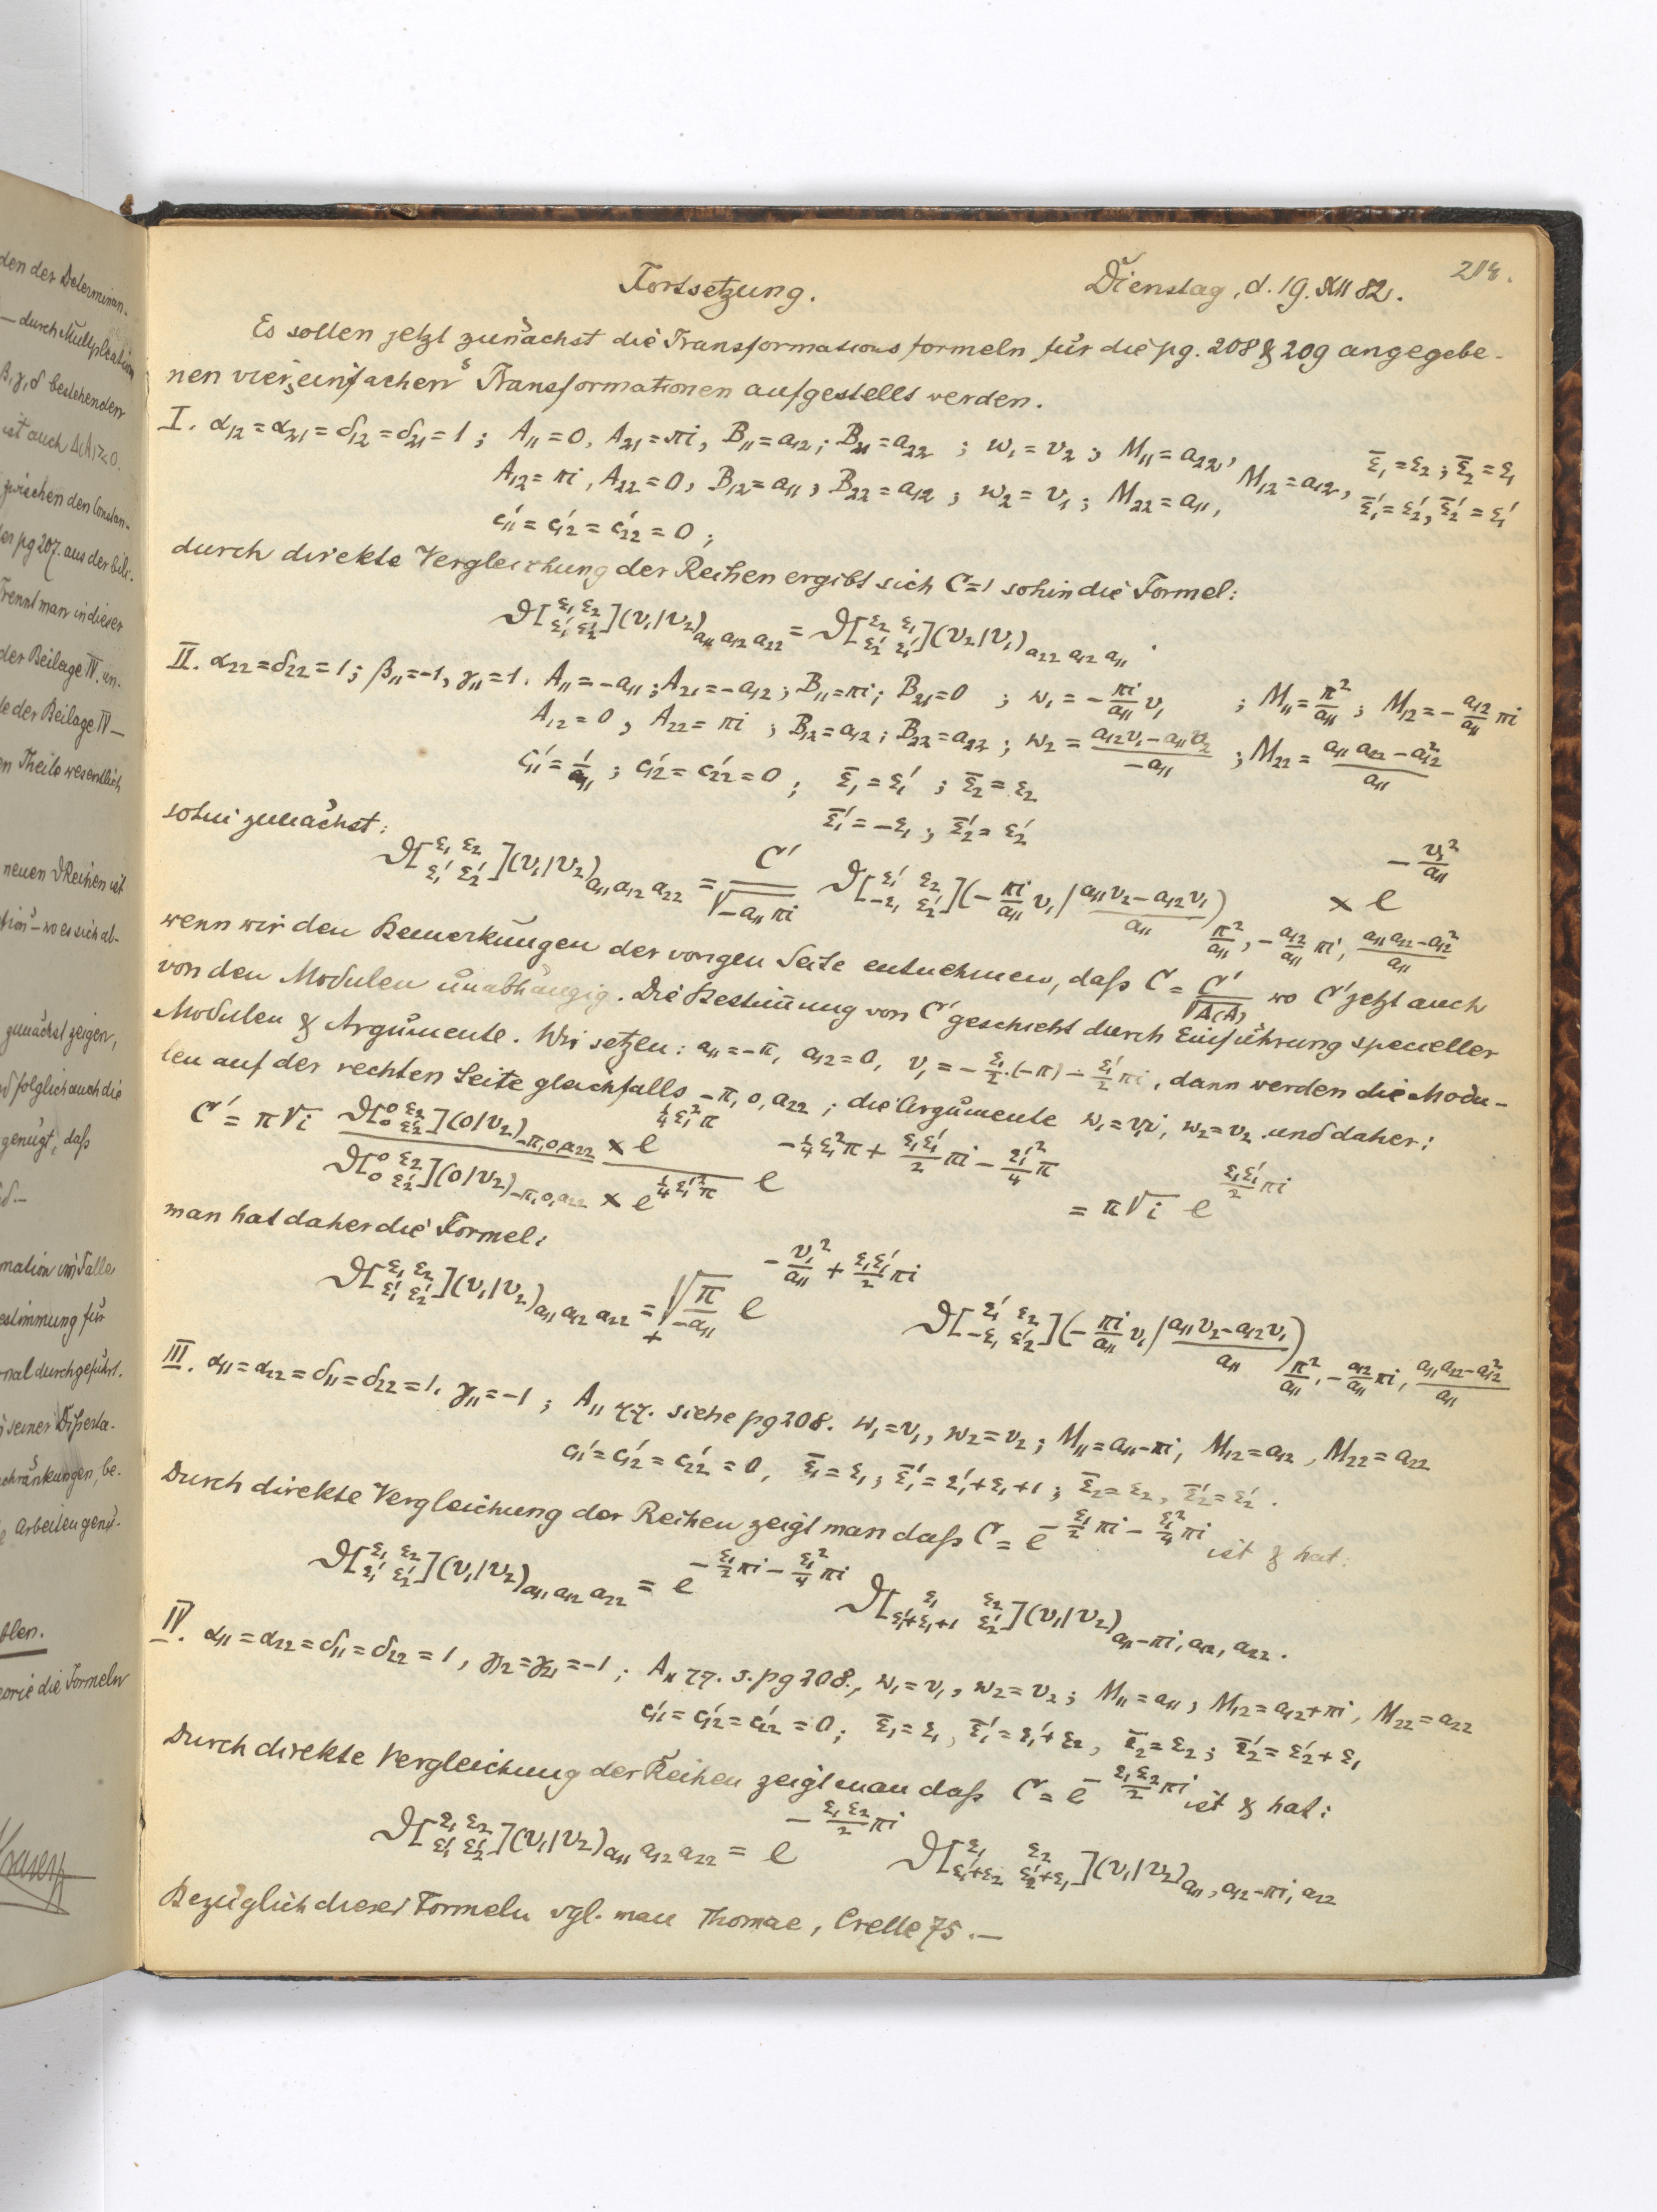 den der Determinan-
— durch Multiplication
β, γ, δ bestehenden
ist auch Δ(A)≷0.
zwischen den Constan-
der pg 207. aus der bili-
Trennt man in dieser
der Beilage IV. an-
le der Beilage IV —
en Theile wesentlich
neuen ϑ Reihen ist
tion" – wo es sich ab-
zunächst zeigen,
d folglich auch die
genügt, daß
mation im Falle
estimmung für
nal durchgeführt.
seiner Disserta-
schränkungen, be-
Arbeiten genü-
orie die Formeln
214.
Fortsetzung. Dienstag, d. 19. XII 82.
Es sollen jetzt zunächst die Transformationsformeln für die pg. 208 & 209 angegebe-
nen vier „einfachen" Transformationen aufgestellt werden.
I. α₁₂ = α₂₁ = δ₁₂ = δ₂₁ = 1 ; A₁₁ = 0, A₂₁ = πi, B₁₁ = a₁₂ ; B₂₁ = a₂₂ ; w₁ = v₂ ; M₁₁ = a₂₂, M₁₂ = a₁₂, ε̄₁ = ε₂ ; ε̄₂ = ε₁
A₁₂ = πi, A₂₂ = 0, B₁₂ = a₁₁ ; B₂₂ = a₁₂ ; w₂ = v₁ ; M₂₂ = a₁₁, ε̄₁' = ε₂', ε̄₂' = ε₁'
c₁₁' = c₁₂' = c₂₂' = 0 ;
durch direkte Vergleichung der Reihen ergibt sich C = 1 sohin die Formel:
ϑ[ε₁ ε₂ / ε₁' ε₂'](v₁|v₂)a₁₁ a₁₂ a₂₂ = ϑ[ε₂ ε₁ / ε₂' ε₁'](v₂|v₁)a₂₂ a₁₂ a₁₁ .
II. α₂₂ = δ₂₂ = 1 ; β₁₁ = -1, γ₁₁ = 1. A₁₁ = -a₁₁ ; A₂₁ = -a₁₂ ; B₁₁ = πi ; B₂₁ = 0 ; w₁ = -πi/a₁₁ v₁ ; M₁₁ = π²/a₁₁ ; M₁₂ = -a₁₂/a₁₁ πi
A₁₂ = 0, A₂₂ = πi ; B₁₂ = a₁₂ ; B₂₂ = a₂₂ ; w₂ = (a₁₂v₁ - a₁₁v₂)/(-a₁₁) ; M₂₂ = (a₁₁a₂₂ - a₁₂²)/a₁₁
c₁₁' = 1/a₁₁ ; c₁₂' = c₂₂' = 0 ; ε̄₁ = ε₁' ; ε̄₂ = ε₂
ε̄₁' = -ε₁ ; ε̄₂' = ε₂'
sohin zunächst:
ϑ[ε₁ ε₂ / ε₁' ε₂'](v₁|v₂)a₁₁ a₁₂ a₂₂ = C'/√(-a₁₁πi) ϑ[ε₁' ε₂ / -ε₁ ε₂'](-πi/a₁₁ v₁ | (a₁₁v₂ - a₁₂v₁)/a₁₁) π²/a₁₁, -a₁₂/a₁₁ πi, (a₁₁a₂₂ - a₁₂²)/a₁₁ × e^(-v₁²/a₁₁)
wenn wir den Bemerkungen der vorigen Seite entnehmen, daß C = C'/√Δ(A) wo C' jetzt auch
von den Modulen unabhängig. Die Bestimung von C' geschieht durch Einführung specieller
Modulen & Argumente. Wir setzen: a₁₁ = -π, a₁₂ = 0, v₁ = -ε₁/2·(-π) - ε₁'/2 πi, dann werden die Modu-
len auf der rechten Seite gleichfalls -π, 0, a₂₂ ; die Argumente w₁ = v₁i, w₂ = v₂ und daher:
C' = π√i ϑ[0 ε₂ / 0 ε₂'](0|v₂)-π,0,a₂₂ × e^(¼ε₁²π) / ϑ[0 ε₂ / 0 ε₂'](0|v₂)-π,0,a₂₂ × e^(¼ε₁'²π) e^(-¼ε₁²π + ε₁ε₁'/2 πi - ε₁'²/4 π) = π√i e^(ε₁ε₁'/2 πi)
man hat daher die Formel:
ϑ[ε₁ ε₂ / ε₁' ε₂'](v₁|v₂)a₁₁ a₁₂ a₂₂ = +√(π/-a₁₁) e^(-v₁²/a₁₁ + ε₁ε₁'/2 πi) ϑ[ε₁' ε₂ / -ε₁ ε₂'](-πi/a₁₁ v₁ | (a₁₁v₂ - a₁₂v₁)/a₁₁) π²/a₁₁, -a₁₂/a₁₁ πi, (a₁₁a₂₂ - a₁₂²)/a₁₁
III. α₁₁ = α₂₂ = δ₁₁ = δ₂₂ = 1, γ₁₁ = -1 ; A₁₁ γγ. siehe pg 208. w₁ = v₁, w₂ = v₂ ; M₁₁ = a₁₁ - πi, M₁₂ = a₁₂, M₂₂ = a₂₂
c₁₁' = c₁₂' = c₂₂' = 0, ε̄₁ = ε₁ ; ε̄₁' = ε₁' + ε₁ + 1 ; ε̄₂ = ε₂, ε̄₂' = ε₂' .
Durch direkte Vergleichung der Reihen zeigt man daß C = e^(-ε₁/2 πi - ε₁²/4 πi) ist & hat:
ϑ[ε₁ ε₂ / ε₁' ε₂'](v₁|v₂)a₁₁ a₁₂ a₂₂ = e^(-ε₁/2 πi - ε₁²/4 πi) ϑ[ε₁ ε₂ / ε₁'+ε₁+1 ε₂'](v₁|v₂)a₁₁-πi, a₁₂, a₂₂ .
IV. α₁₁ = α₂₂ = δ₁₁ = δ₂₂ = 1, γ₁₂ = γ₂₁ = -1 ; A₁₁ γγ. s. pg 208., w₁ = v₁, w₂ = v₂ ; M₁₁ = a₁₁ ; M₁₂ = a₁₂ + πi, M₂₂ = a₂₂
c₁₁' = c₁₂' = c₂₂' = 0 ; ε̄₁ = ε₁, ε̄₁' = ε₁' + ε₂, ε̄₂ = ε₂ ; ε̄₂' = ε₂' + ε₁
Durch direkte Vergleichung der Reihen zeigt man daß C = e^(-ε₁ε₂/2 πi) ist & hat:
ϑ[ε₁ ε₂ / ε₁' ε₂'](v₁|v₂)a₁₁ a₁₂ a₂₂ = e^(-ε₁ε₂/2 πi) ϑ[ε₁ ε₂ / ε₁'+ε₂ ε₂'+ε₁](v₁|v₂)a₁₁, a₁₂-πi, a₂₂
Bezüglich dieser Formeln vgl. man Thomae, Crelle 75. —